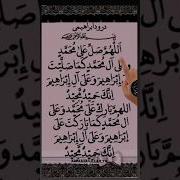 درود ابراهیمی
اَللّٰهُمَّ صَلِّ عَلٰی مُحَمَّدٍ
وَّعَلٰٓی اٰلِ مُحَمَّدٍ کَمَا صَلَّیْتَ
عَلٰٓی اِبْرَاهِیْمَ وَعَلٰٓی اٰلِ اِبْرَاهِیْمَ
اِنَّکَ حَمِیْدٌ مَّجِیْدٌ
اَللّٰهُمَّ بَارِکْ عَلٰی مُحَمَّدٍ وَّعَلٰٓی
اٰلِ مُحَمَّدٍ کَمَا بَارَکْتَ عَلٰٓی
اِبْرَاهِیْمَ وَعَلٰٓی اٰلِ اِبْرَاهِیْمَ
اِنَّکَ حَمِیْدٌ مَّجِیْدٌ